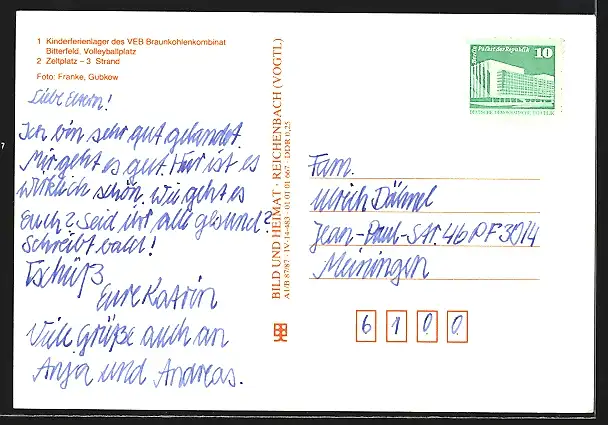 1 Kinderferienlager des VEB Braunkohlenkombinat
Bitterfeld, Volleyballplatz
2 Zeltplatz – 3 Strand
Foto: Franke, Gubkow
Liebe Eltern!
Ich bin sehr gut gelandet.
Mir geht es gut. Hier ist es
wirklich schön. Wie geht es
Euch? Seid ihr alle gesund?
Schreibt bald!
Tschüß
Eure Katrin
Viele Grüße auch an
Anja und Andreas.
BILD UND HEIMAT · REICHENBACH (VOGTL)
A1/B 87/87 · IV-14-483 · 01 01 01 667 · DDR 0,25
Berlin Palast der Republik
10
Fam.
Ulrich Dähnel
Jean-Paul-Str. 46 PF 3014
Meiningen
6100